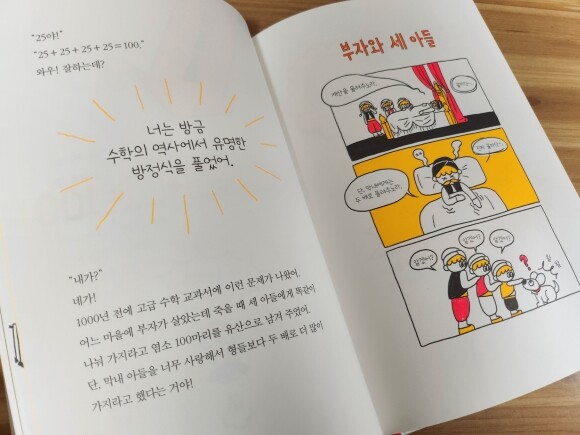 "25야!"
"25+25+25+25=100."
와우! 잘하는데?
너는 방금
수학의 역사에서 유명한
방정식을 풀었어.
"내가?"
네가!
1000년 전에 고급 수학 교과서에 이런 문제가 나왔어.
어느 마을에 부자가 살았는데 죽을 때 세 아들에게 똑같이
나눠 가지라고 염소 100마리를 유산으로 남겨 주었어.
단, 막내 아들을 너무 사랑해서 형들보다 두 배로 더 많이
가지라고 했다는 거야!
부자와 세 아들
단, 막내에게는
두 배로 물려주노라.